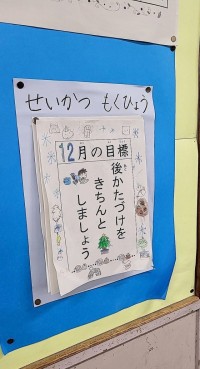 せいかつ もくひょう
12月の目標
後かたづけを
きちんと
しましょう